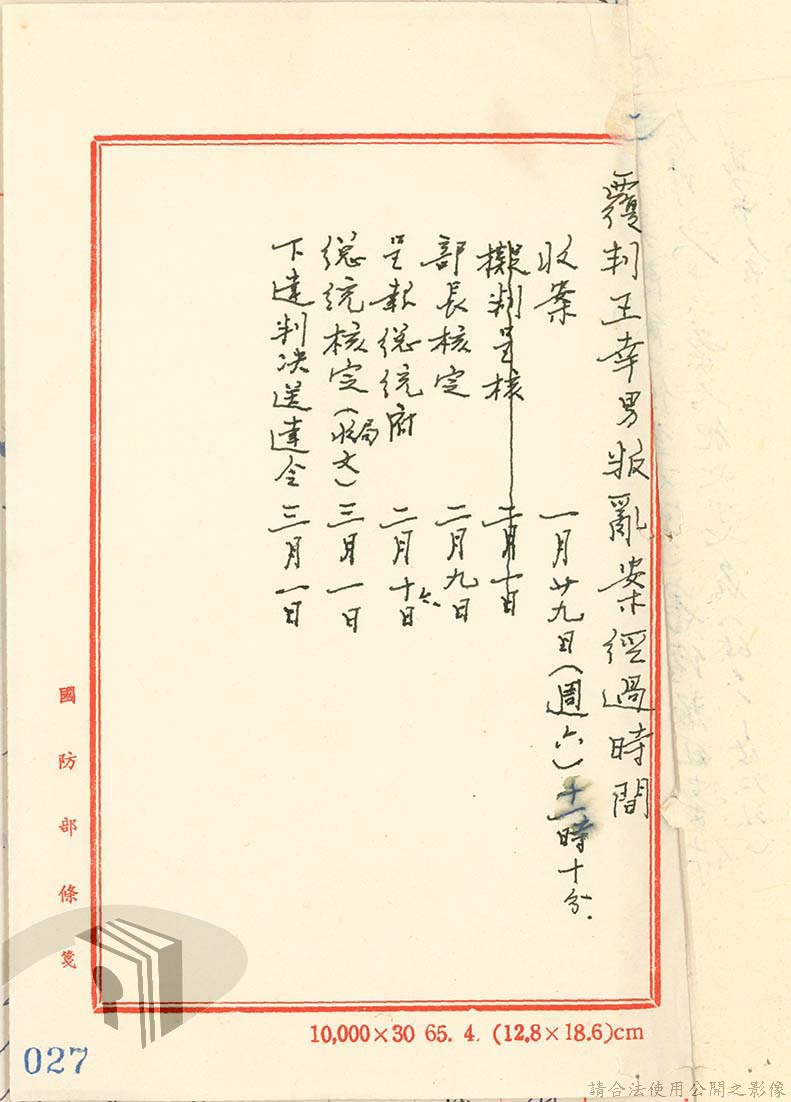 覆判王幸男叛亂案經過時間
收案 一月廿九日(週六)十一時十分.
擬判呈核 二月一日
部長核定 二月九日
呈報總統府 二月十六日
總統核定(局收文) 三月一日
下達判決送達令 三月一日
國防部條箋
10,000×30 65. 4. (12.8×18.6)cm
027
請合法使用公開之影像